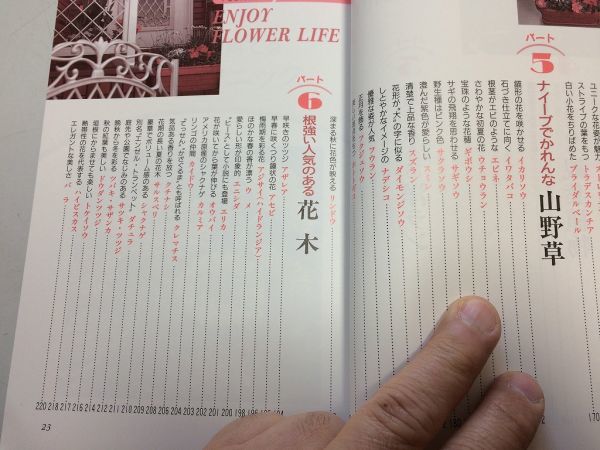 ENJOY
FLOWER LIFE
ユニークな花姿が魅力
ストライプの葉をもつ トラデスカンチア
白い小花をちりばめた ブライダルベール
170
パート
5
ナイーブでかれんな 山野草
錨形の花を咲かせる イカリソウ
石づき仕立てに向く イワタバコ
根茎がエビのような エビネ
さわやかな初夏の花 ウチョウラン
宝珠のような花穂 ギボウシ
サギの飛翔を思わせる サギソウ
野生種はピンク色 サクラソウ
澄んだ紫色が愛らしい スミレ
清楚で上品な香り スズラン
花形が“大”の字に似る ダイモンジソウ
しとやかなイメージの ナデシコ
優雅な姿が人気 フウラン
正月を飾る フクジュソウ
深まる秋に花色が映える リンドウ
パート
6
根強い人気のある 花木
早咲きのツツジ アザレア
早春に咲くつり鐘状の花 アセビ
梅雨期を彩る花 アジサイ(ハイドランジア)
ほのかな春の香が漂う ウメ
愛らしい蝶形の印象的 エニシダ
“ヒース”としての小説にも登場 エリカ
花が咲いてから葉が伸びる オウバイ
アメリカ原産のシャクナゲ カルミア
リンゴの仲間 カイドウ
“てっせん”“かざぐるま”とも呼ばれる クレマチス
気品ある香りを放つ クチナシ
花期の長い夏の花木 サルスベリ
豪華でボリューム感のある シャクナゲ
別名“エンゼル・トランペット” ダチュラ
庭先や公園でおなじみの サツキ・ツツジ
晩秋から冬を彩る ツバキ・サザンカ
秋の紅葉も美しい ドウダンツツジ
垣根にからませても楽しい トケイソウ
熱帯性の花を代表する ハイビスカス
エレガントな美しさ バラ
194
195
196
198
200
201
202
204
206
208
209
210
211
212
214
216
217
218
220
23